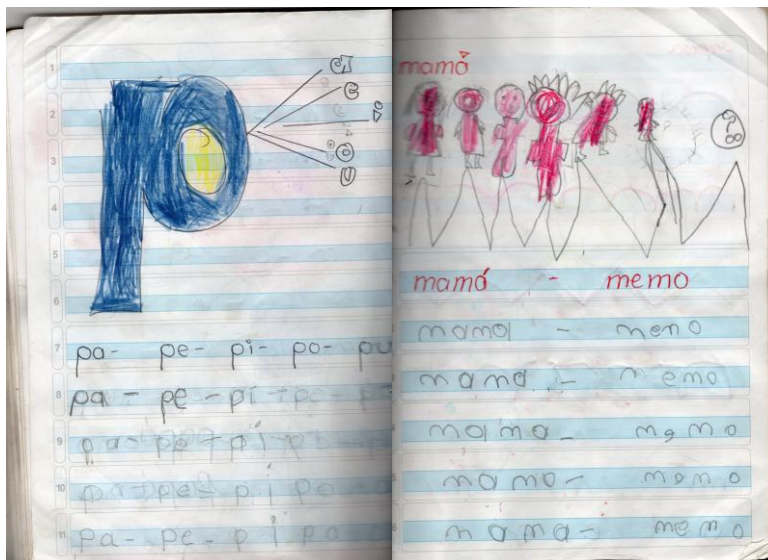 1
2
3
4
5
6
p
a
e
i
o
u
7 pa- pe- pi- po- pu
8 pa - pe - pi - po -
9 pa- pe- pi- po
10 pa- pe- pi po
11 pa- pe- pi po
mamá
mamá - memo
mama - memo
mama - memo
mama - memo
mama - memo
mama - memo